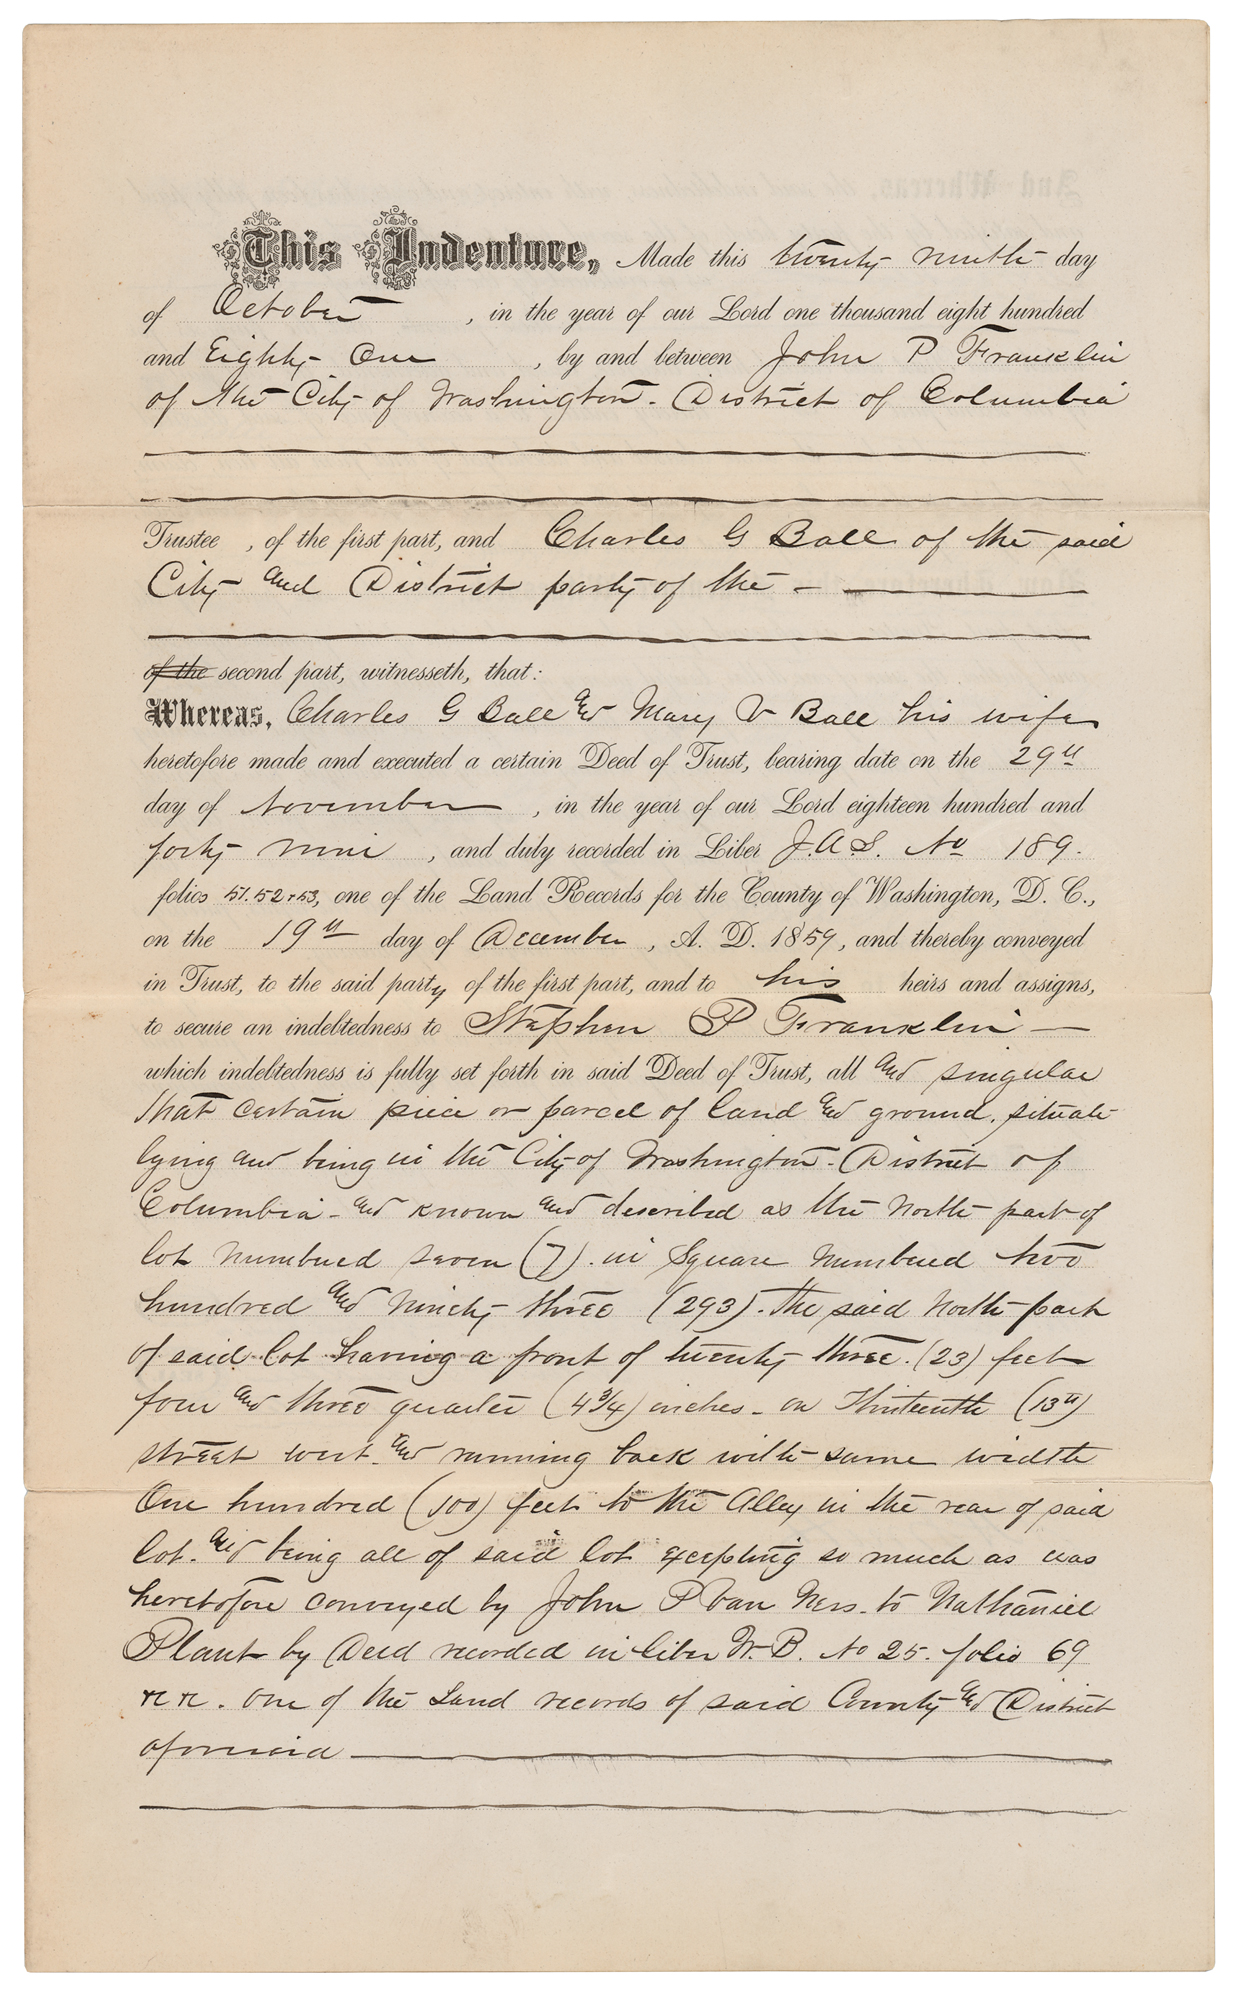 This Indenture, Made this twenty ninth day
of October , in the year of our Lord one thousand eight hundred
and Eighty One , by and between John P Franklin
of the City of Washington. District of Columbia
Trustee , of the first part, and Charles G Ball of the said
City and District party of the –
of the second part, witnesseth, that:
Whereas, Charles G Ball and Mary V Ball his wife
heretofore made and executed a certain Deed of Trust, bearing date on the 29th
day of November , in the year of our Lord eighteen hundred and
forty nine , and duly recorded in Liber J.A.S. No 189.
folios 51.52+53, one of the Land Records for the County of Washington, D. C.,
on the 19th day of December , A. D. 1859, and thereby conveyed
in Trust, to the said party of the first part, and to his heirs and assigns,
to secure an indebtedness to Stephen P Franklin —
which indebtedness is fully set forth in said Deed of Trust, all and singular
that certain piece or parcel of land and ground, situate
lying and being in the City of Washington. District of
Columbia – and known and described as the North part of
lot numbered seven (7). in Square numbered two
hundred and ninety three (293). The said North part
of said lot having a front of twenty three. (23) feet
four and three quarter (4 3/4) inches – on Thirteenth (13th)
street west. and running back with same width
One hundred (100) feet to the Alley in the rear of said
lot. and being all of said lot excepting so much as was
heretofore conveyed by John P Van Ness. to Nathaniel
Plant by Deed recorded in liber W.B. No 25. folio 69
&c &c. one of the Land records of said County and District
aforesaid